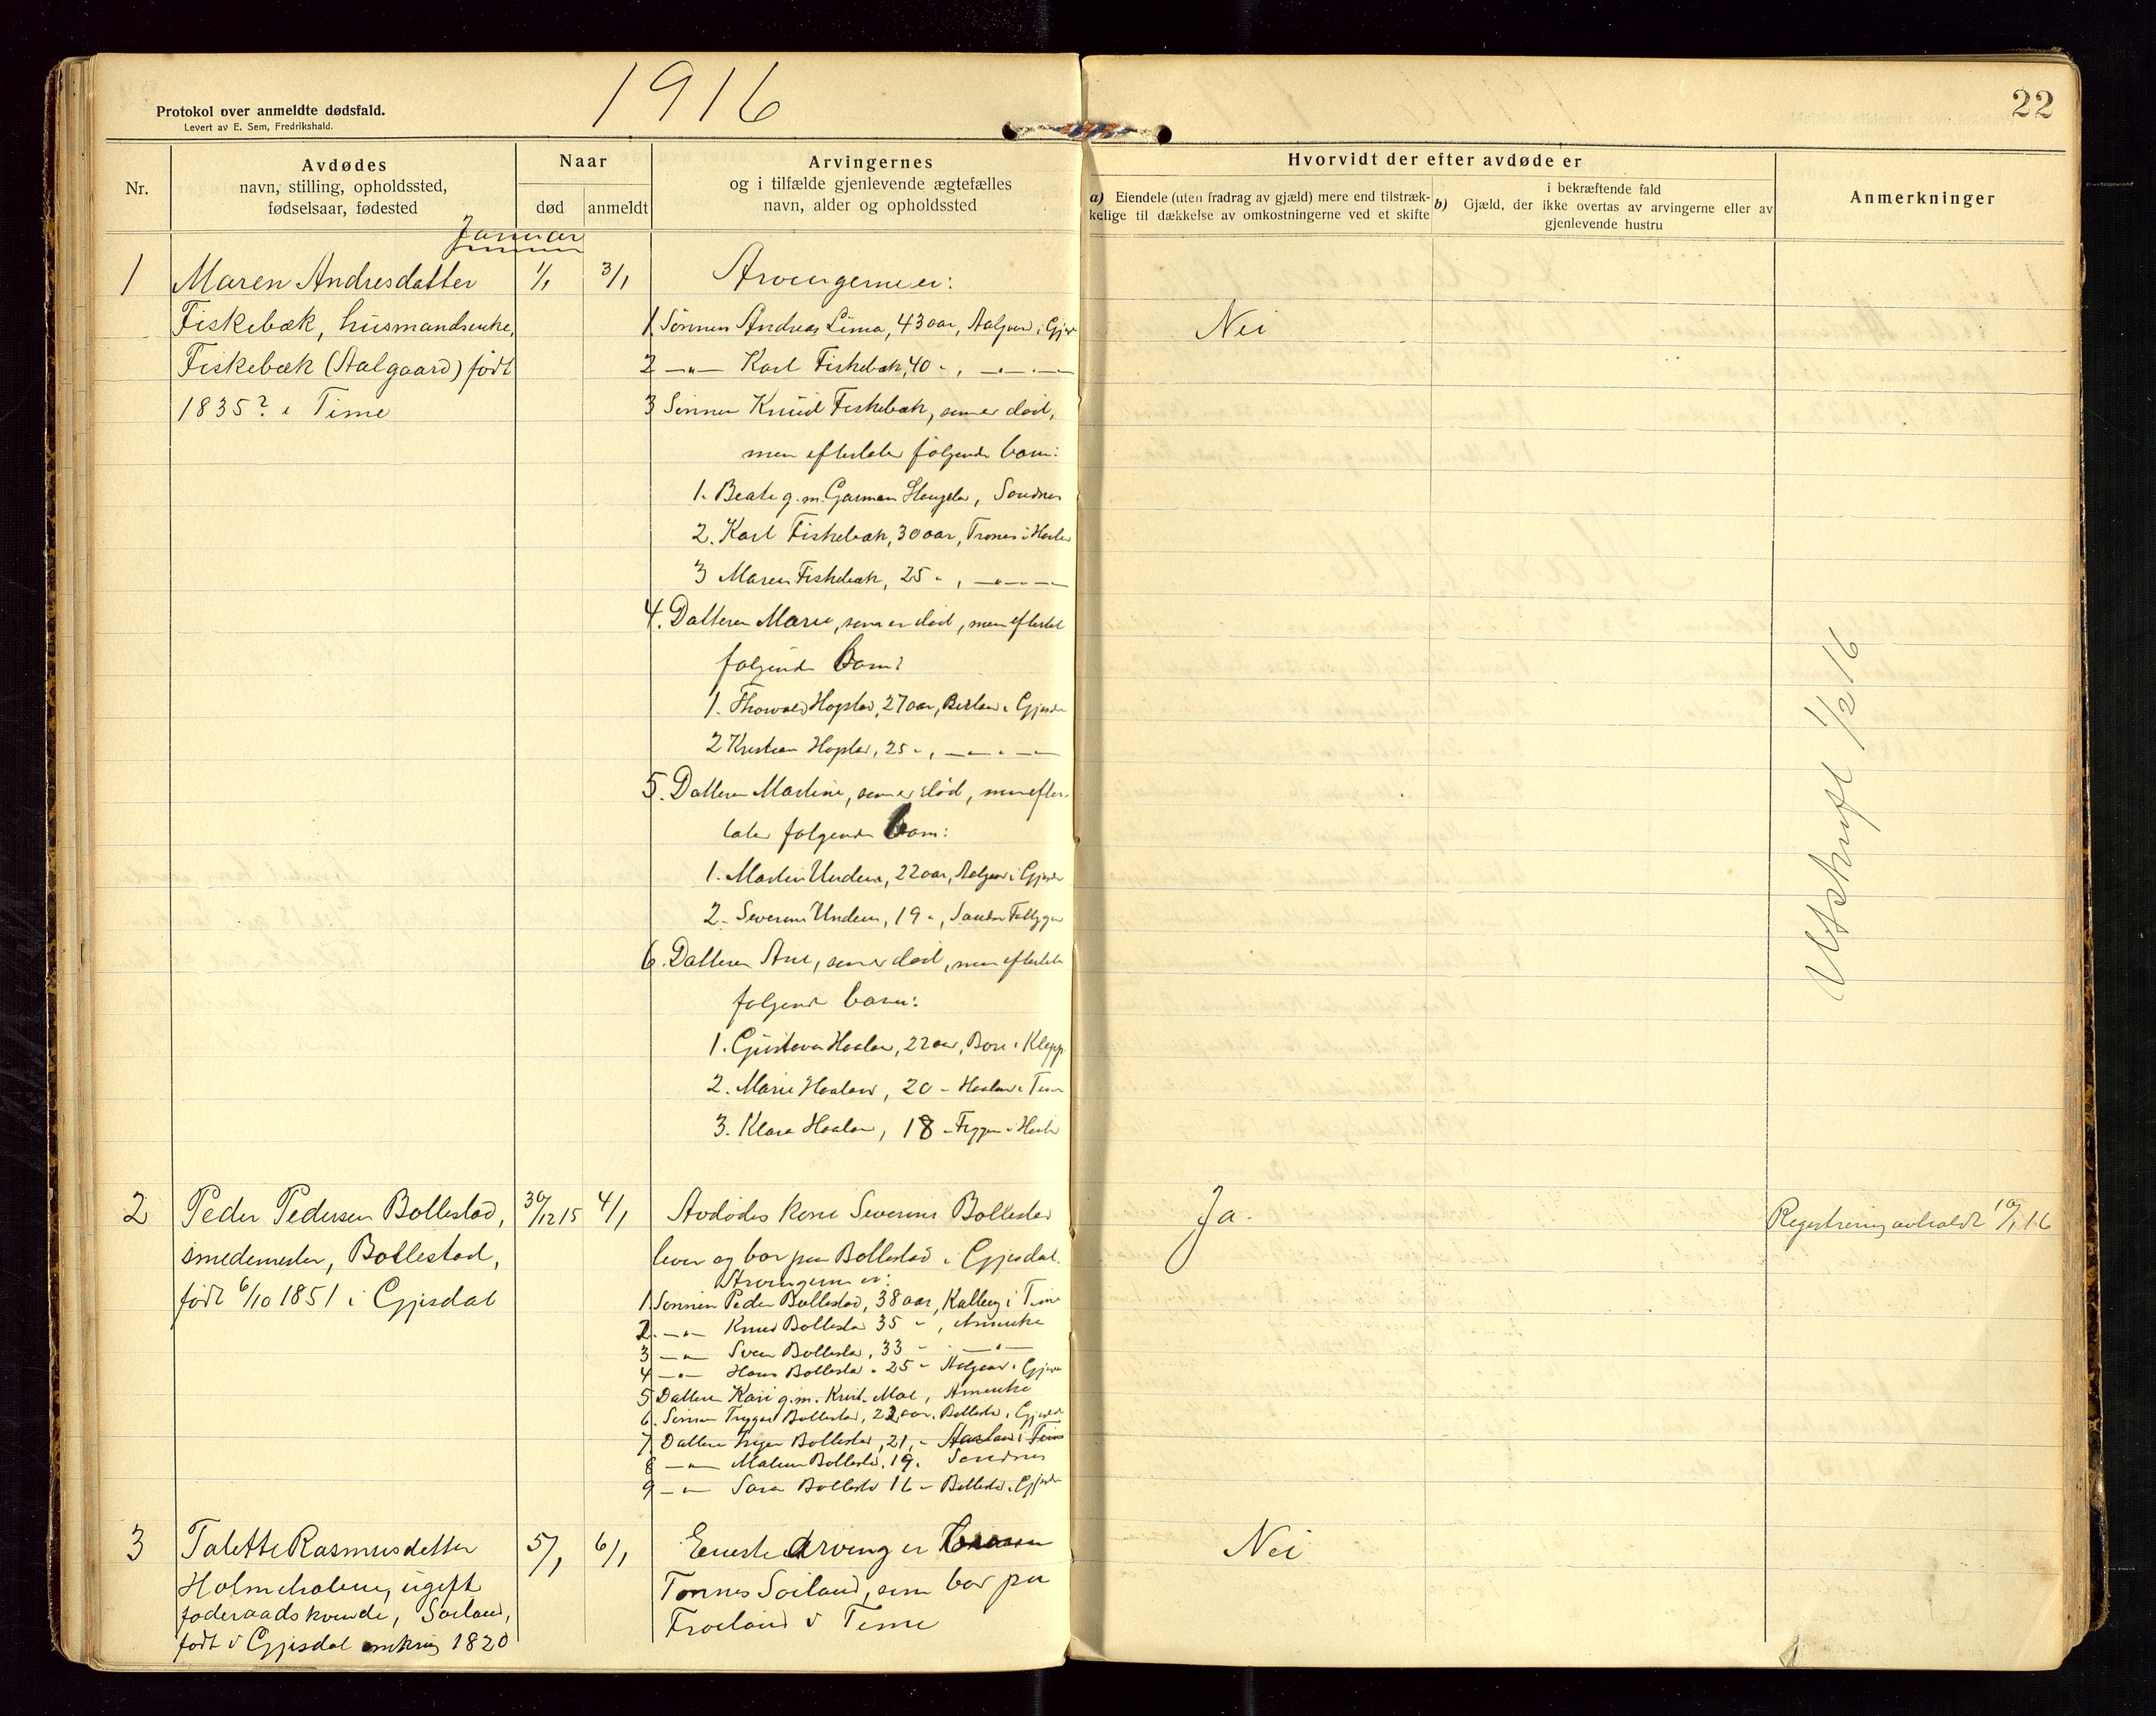 1916
22
Protokol over anmeldte dødsfald.
Levert av E. Sem, Fredrikshald.
Nr.
Avdødes
navn, stilling, opholdssted,
fødselsaar, fødested
Naar
død
anmeldt
Arvingernes
og i tilfælde gjenlevende ægtefælles
navn, alder og opholdssted
Hvorvidt der efter avdøde er
a) Eiendele (uten fradrag av gjæld) mere end tilstræk-
kelige til dækkelse av omkostningerne ved et skifte
b) i bekræftende fald
Gjæld, der ikke overtas av arvingerne eller av
gjenlevende hustru
Anmerkninger
Januar
1 Maren Andresdatter 1/1 3/1
Fiskebæk, husmandsenke,
Fiskebæk (Aalgaard) født
1835? i Time
Arvingerne er:
1. Sönnen Andreas Lima, 43 aar, Aalgaard i Gjesd
2 —"— Karl Fiskebæk, 40 ", —"—
3 Sönnen Knud Fiskebæk, som er död,
men efterlater følgende barn:
1. Beate g.m. Garman Haugstad, Sandnes
2. Karl Fiskebæk, 30 aar, Trones i Høiland
3 Maren Fiskebæk, 25 ", —"—
4. Datteren Marie, som er död, men efterlat
følgende barn:
1. Thorvald Hogstad, 27 aar, Berland i Gjesdal
2 Kristian Hogstad, 25 ", —"—
5. Datteren Martine, som er död, men efter-
later følgende barn:
1. Martin Undem, 22 aar, Aalgaard i Gjesdal
2. Severine Undem, 19 ",
6. Datteren Ane, som er död, men efterlater
følgende barn:
1. Gustava Haaland, 22 aar, Bore i Klepp
2. Marie Haaland, 20 " Haaland i Time
3. Klara Haaland, 18 "
Nei
Utskrift 1/2 16
2 Peder Pedersen Bollestad, 30/12 15 4/1
smedemester, Bollestad,
født 6/10 1851 i Gjesdal
Avdødes kone Severine Bollestad
lever og bor paa Bollestad i Gjesdal.
Arvingerne er:
1 Sønnen Peder Bollestad, 38 aar, Kalberg i Time
2. —"— Knud Bollestad 35 ", Amerika
3 —"— Sven Bollestad, 33 " —"—
4 —"— Hans Bollestad " 25 " Aalgaard i Gjesdal
5 Datteren Kari g.m. Krist. Moe, Amerika
6. Sønnen Trygve Bollestad, 22 aar, Bollestad i Gjesdal
7. Datteren Inger Bollestad, 21, " Haaland i Time
8 —"— Malene Bollestad, 19. Sandnes
9 —"— Sara Bollestad 16 " Bollestad i Gjesdal
Ja.
Registrering avholdt 10/1 16
3 Talette Rasmusdatter 5/1 6/1
Holmekolene, ugift
føderaadskvinde, Soiland,
født i Gjesdal omkring 1820
Eneste Arving er
Tønnes Soiland, som bor paa
Frøland i Time
Nei